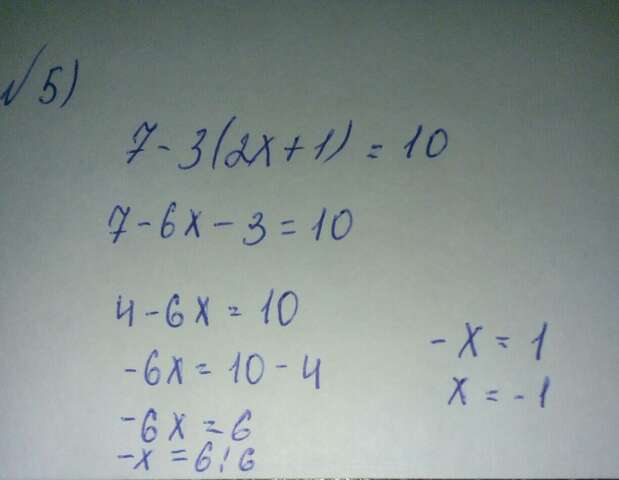 √5)
7-3(2x+1)=10
7-6x-3=10
4-6x=10
-6x=10-4
-6x=6
-x=6:6
-x=1
x=-1